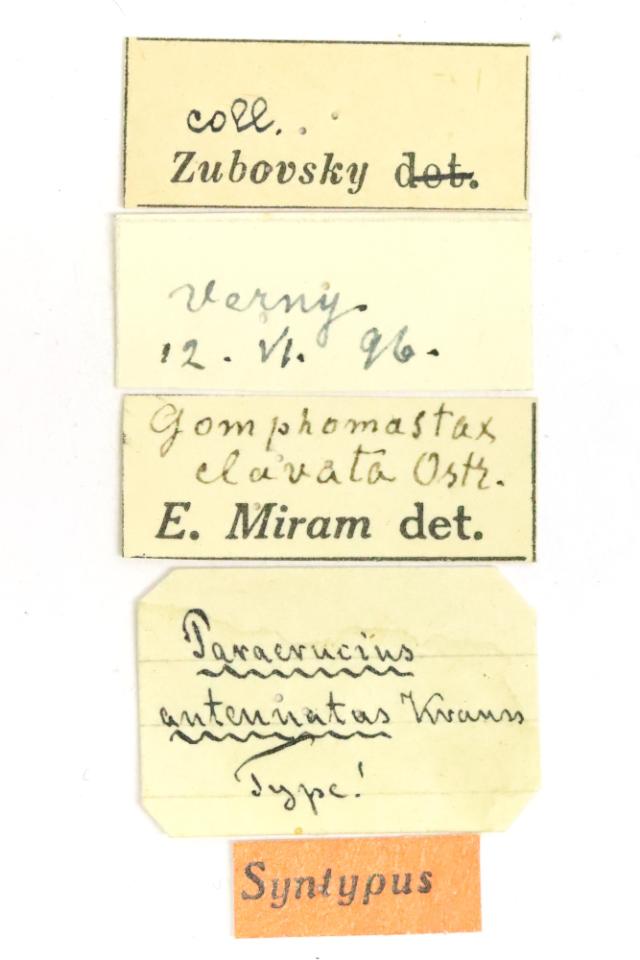 coll.
Zubovsky det.
Verny.
12. VI. 96.
Gomphomastax
clavata Ostr.
E. Miram det.
Paraerucius
antennatus Krauss
Type!
Syntypus